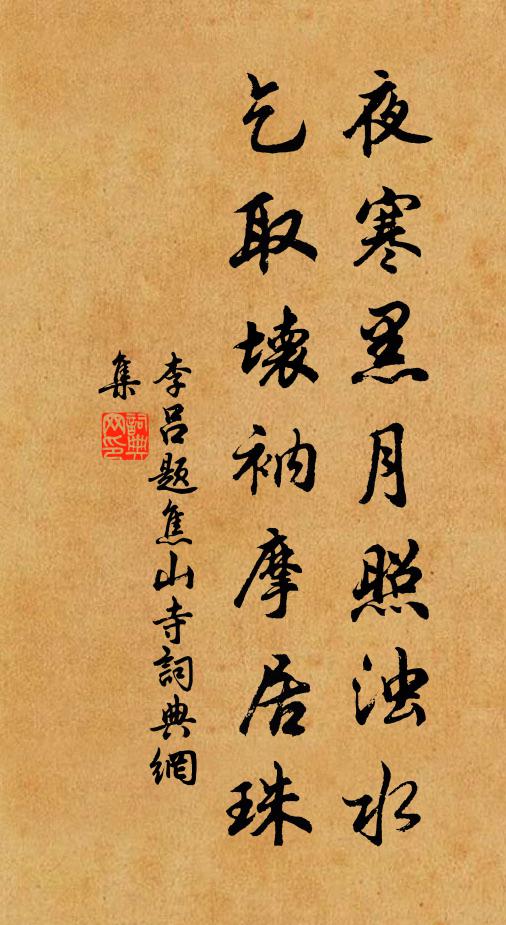 夜寒黑月照浊水
乞取壊衲摩居珠
李吕题焦山寺詞典網
集
詞典网印